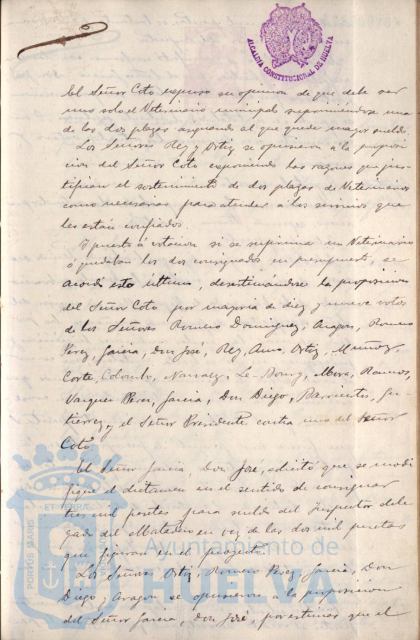 ALCALDIA CONSTITUCIONAL DE HUELVA
El Señor Coto expuso su opinion de que debe ser
uno solo el Veterinario municipal suprimiendose una
de las dos plazas asignando al que quede mayor sueldo.
Los Señores Rey y Ortiz se opusieron á la proposi
cion del Señor Coto exponiendo las razones que jus-
tifican el sostenimiento de dos plazas de Veterinarios
como necesarias para atender á los servicios que
les están confiados.
Y puesto á votacion si se suprime un Veterinario
ó quedaban los dos consignados en presupuesto, se
acordó esto último, desestimándose la proposicion
del Señor Coto por mayoria de diez y nueve votos
de los Señores Romero Dominguez, Aragon, Romero
Perez, Garcia, Don José, Rey, Amo, Ortiz, Muñoz,
Corte, Colombo, Narvaez, Le-Bourg, Mora, Ramos,
Vazquez Perez, Garcia, Don Diego, Barrientos, Gu-
tierrez, y el Señor Presidente contra uno del Señor
Coto
El Señor Garcia, Don José, solicitó que se modi
fique el dictamen en el sentido de consignar
tres mil pesetas para sueldo del Inspector dele-
gado del Matadero en vez de las dos mil pesetas
que figuran en el proyecto.
Los Señores Ortiz, Romero Perez, Garcia, Don
Diego, y Aragon se opusieron á la proposicion
del Señor Garcia, Don José, por estimar que el
PORTUS MARIS
ET TERRAE
Ayuntamiento de
HUELVA